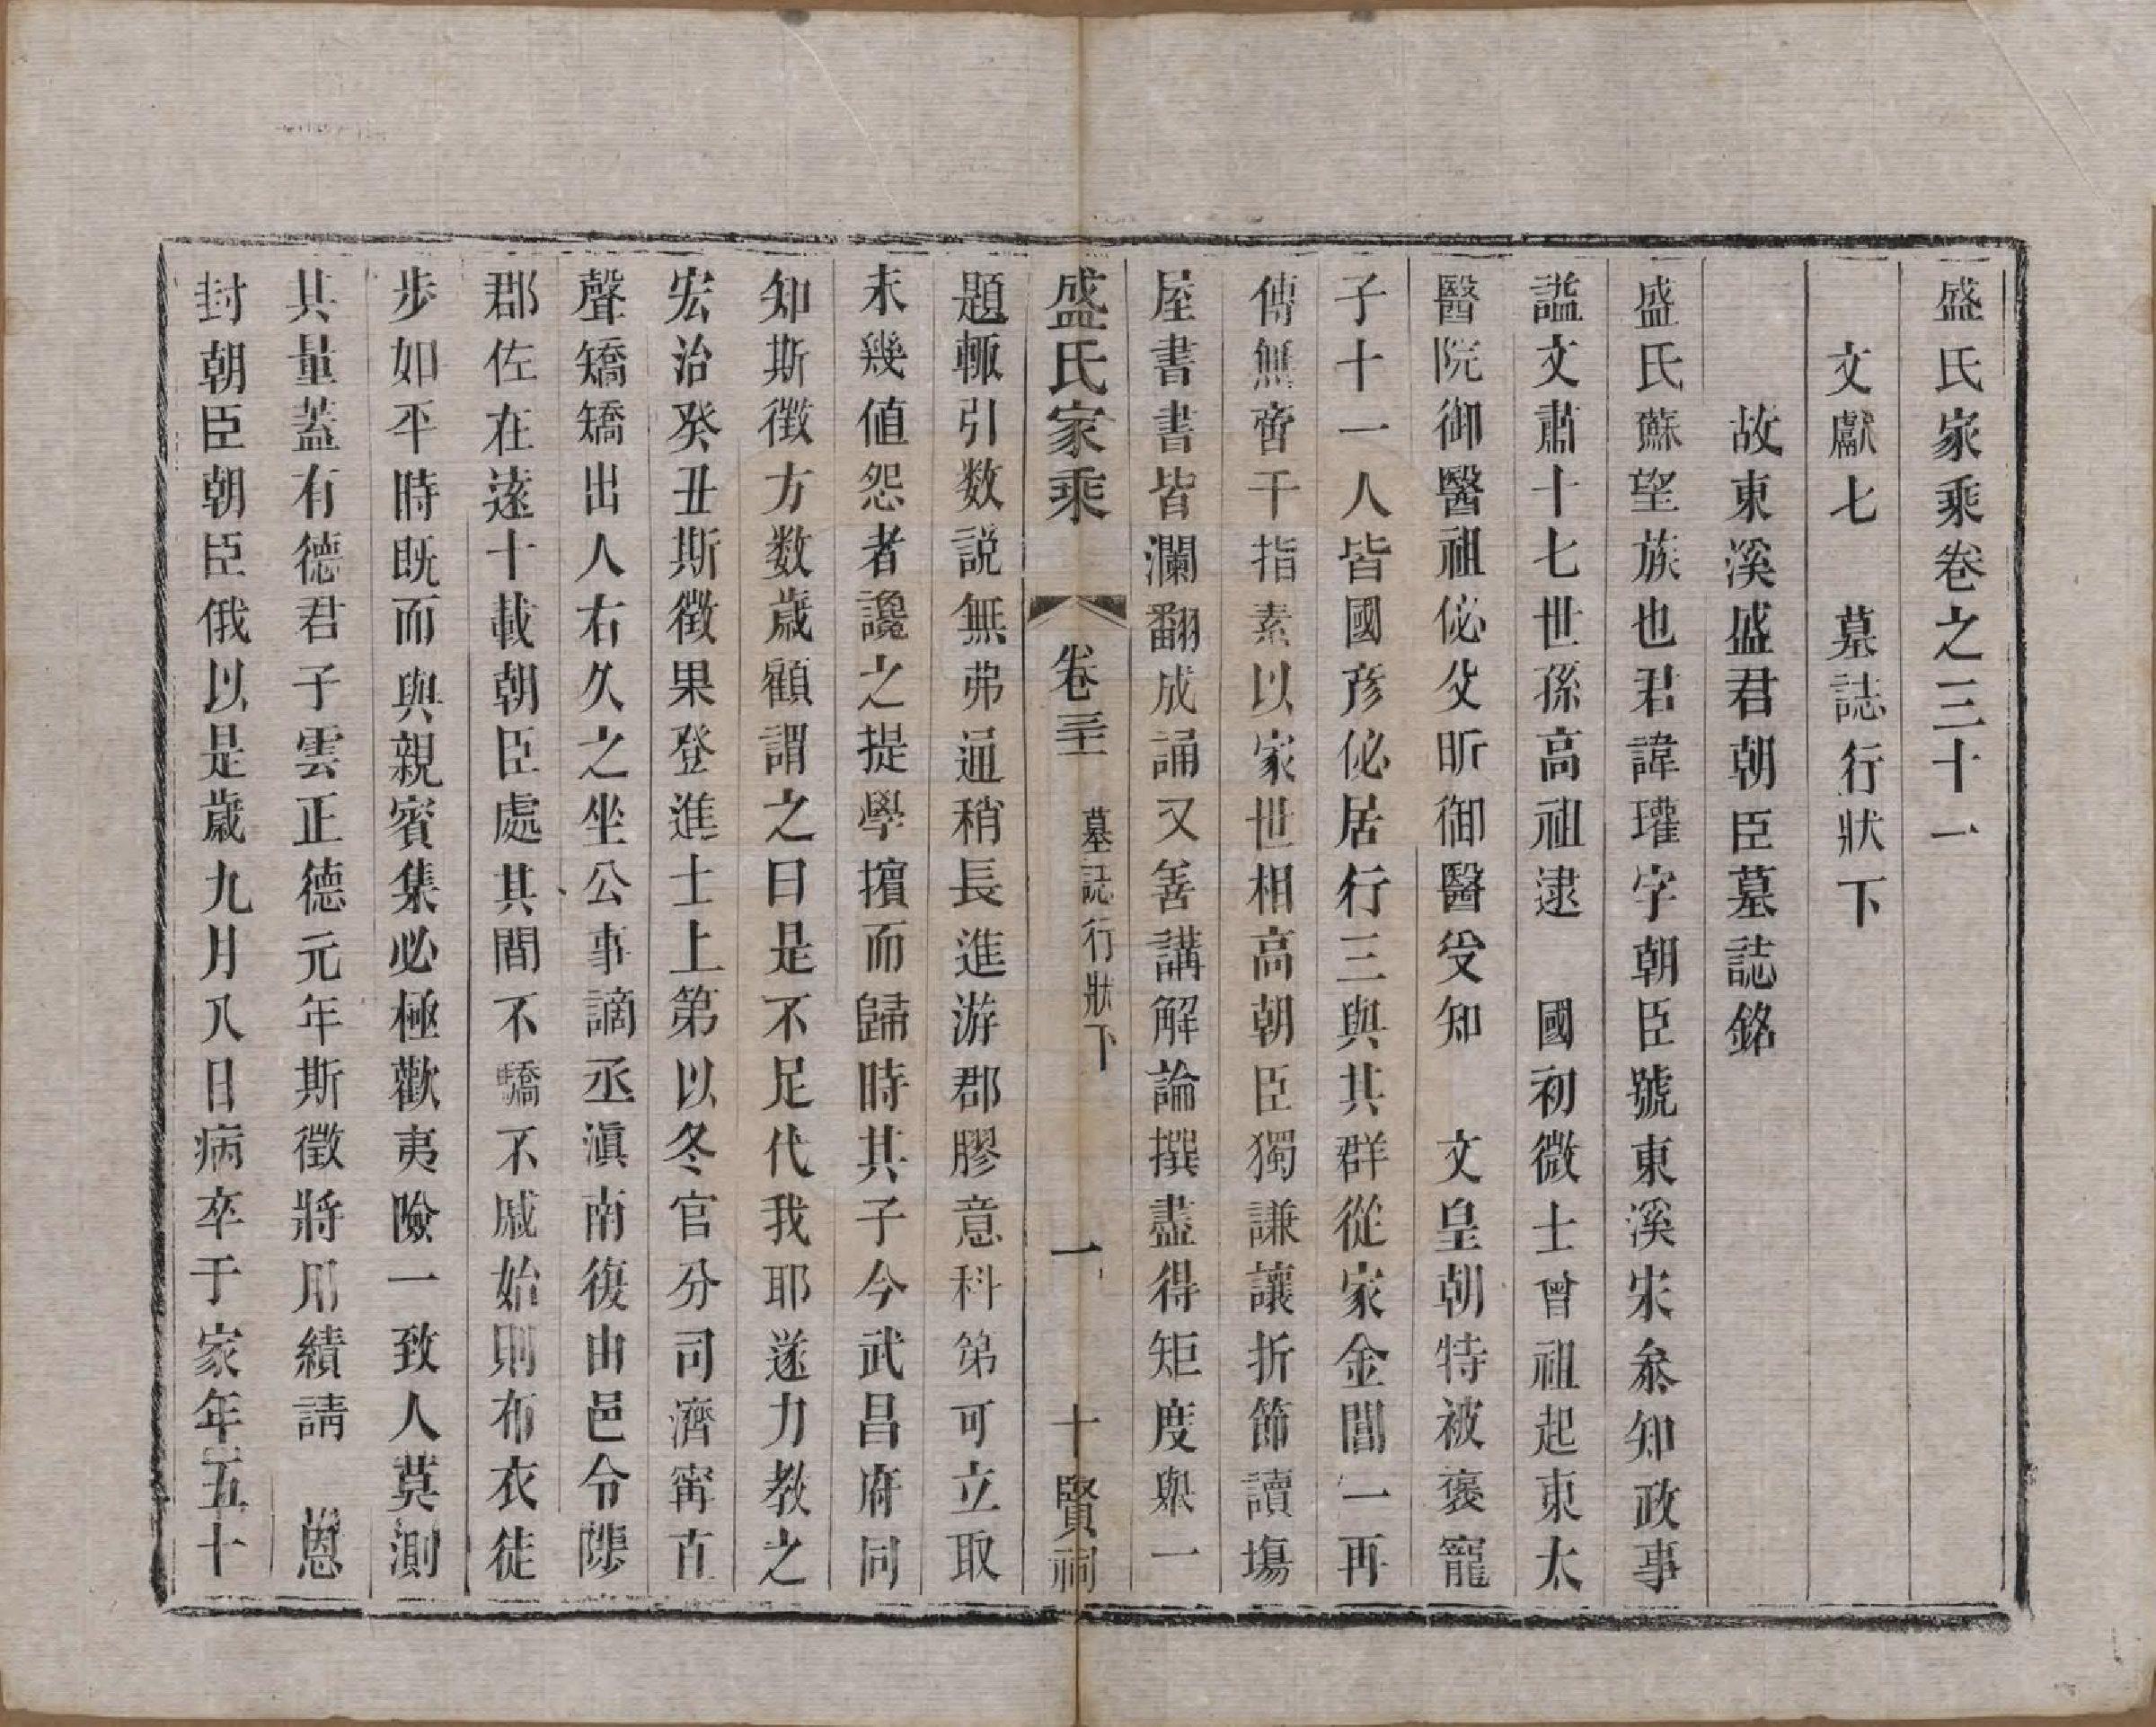 盛氏家乘卷之三十一
文獻七　墓誌行狀下
故東溪盛君朝臣墓誌銘
盛氏蘇望族也君諱瓘字朝臣號東溪宋叅知政事
謚文肅十七世孫高祖逮　國初徵士曾祖起東太
醫院御醫祖佖父昕御醫受知　文皇朝特被褒寵
子十一人皆國彥佖居行三與其群從家金閶一再
傳無啻千指素以家世相高朝臣獨謙讓折節讀塲
屋書書皆瀾翻成誦又善講解論撰盡得矩度與一
盛氏家乘　卷三十一　墓誌行狀下　一　十賢祠
題輒引数説無弗通稍長進游郡膠意科第可立取
未幾值怨者讒之提學擯而歸時其子今武昌府同
知斯徵方数歲顧謂之曰是不足代我耶遂力教之
宏治癸丑斯徵果登進士上第以冬官分司濟寧直
聲矯矯出人右久之坐公事謫丞滇南復由邑令陟
郡佐在遠十載朝臣處其間不驕不戚始則布衣徒
步如平時既而與親賓集必極歡夷險一致人莫測
其量蓋有德君子雲正德元年斯徵將用績請　恩
封朝臣朝臣俄以是歲九月八日病卒于家年五十